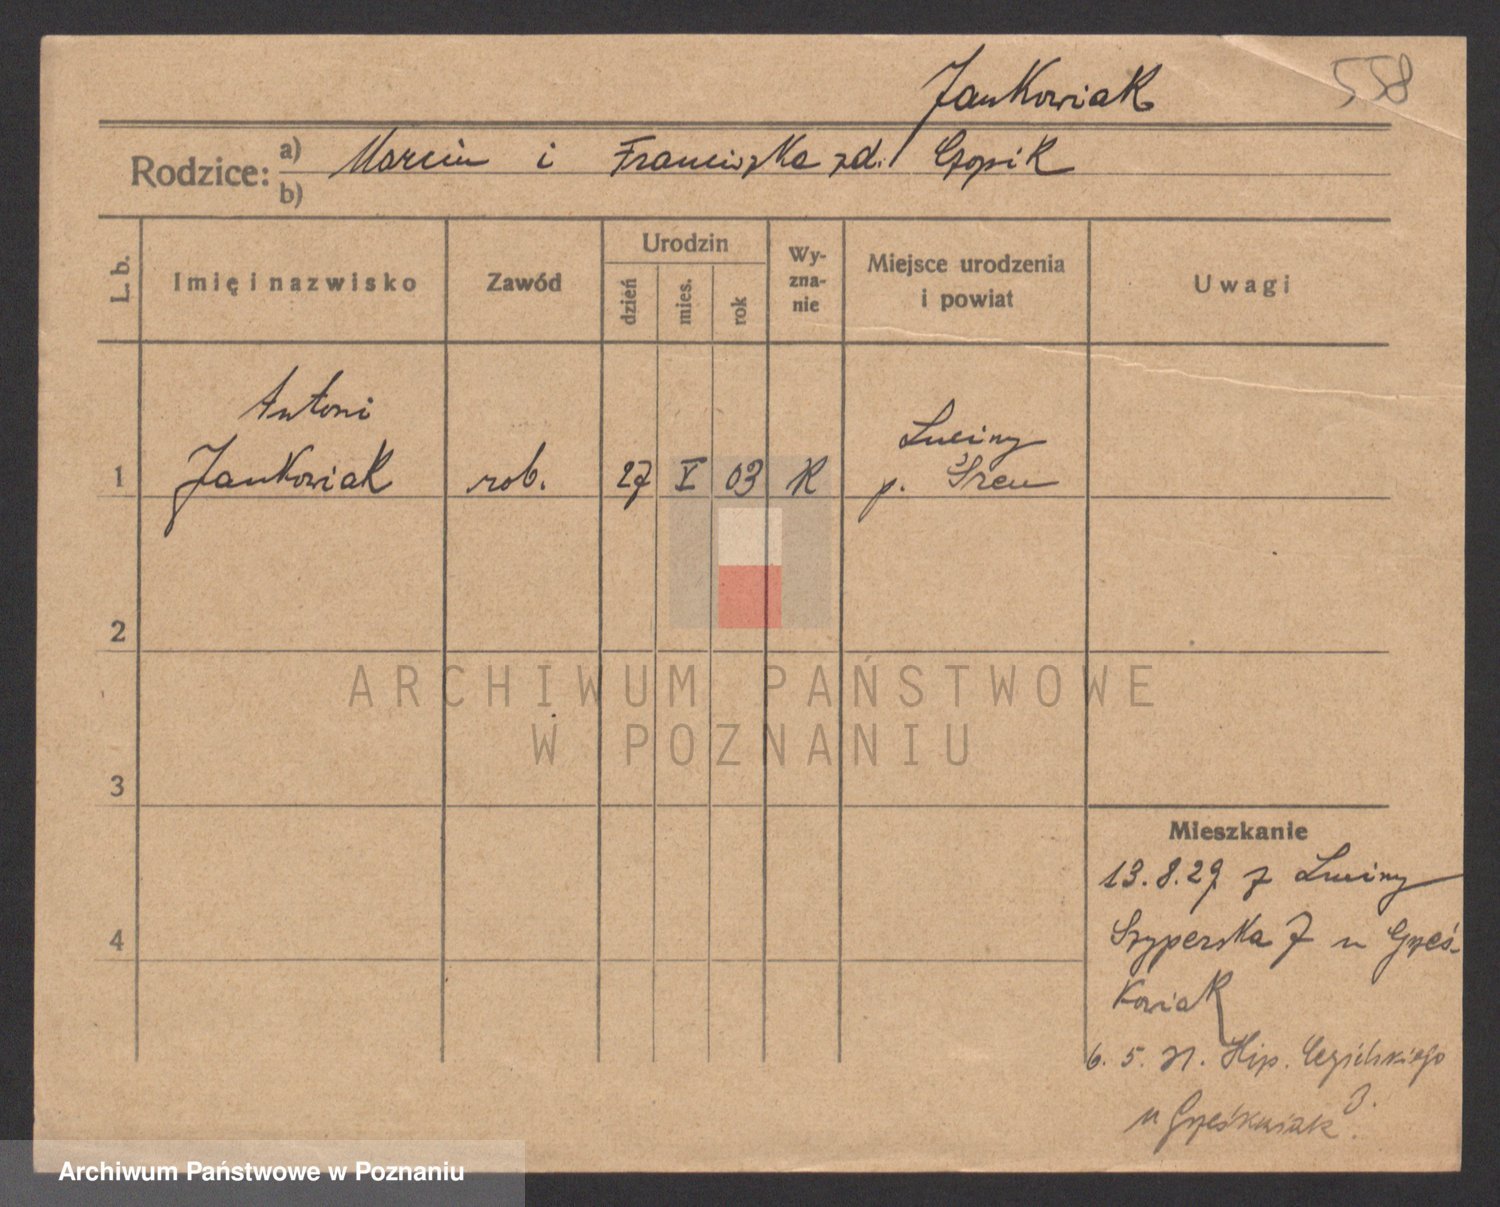 Jankowiak 558
Rodzice: a) Marcin i Franciszka zd. Czopik
b)
L. b. Imię i nazwisko Zawód Urodzin dzień mies. rok Wyznanie Miejsce urodzenia i powiat Uwagi
Antoni
Luciny
1 Jankowiak rob. 27 V 03 K p. Śrem
2
ARCHIWUM PAŃSTWOWE
W POZNANIU
3
Mieszkanie
13.8.29 z Luciny
4
Szyperska 7 u Grześ-
kowiak
6. 5. 31. Hip. Cegielskiego
3.
u Grześkowiak.
Archiwum Państwowe w Poznaniu